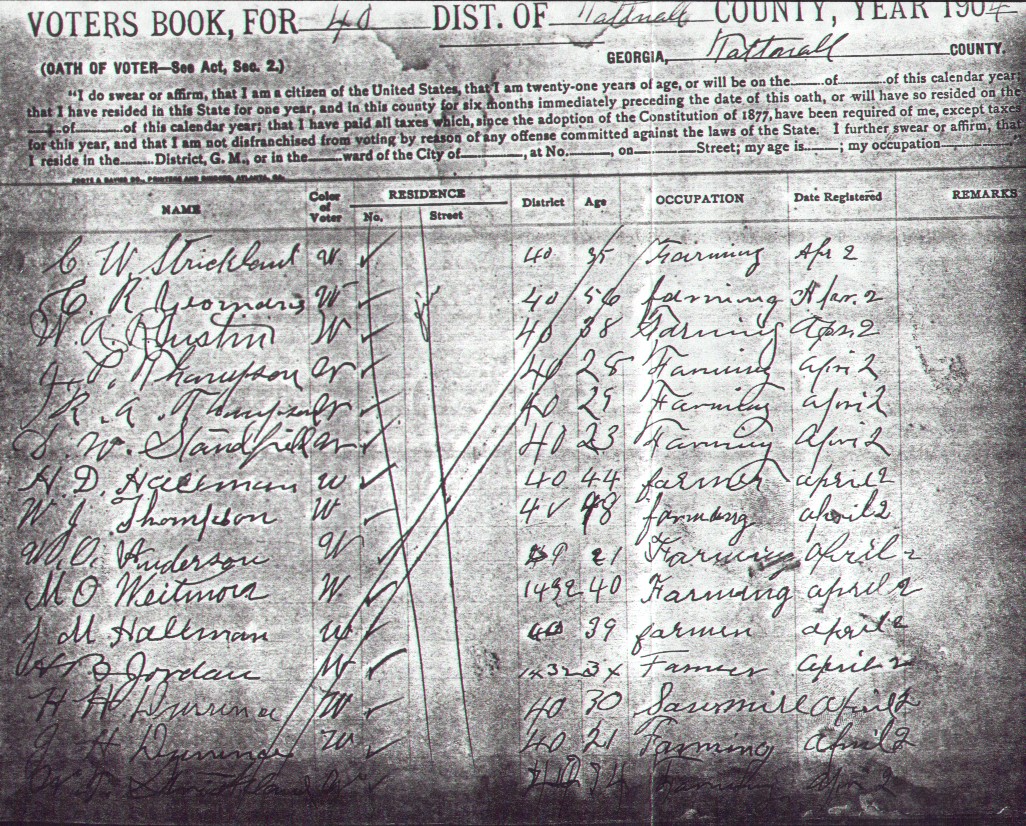 VOTERS BOOK, FOR 40 DIST. OF Tattnall COUNTY, YEAR 1904
GEORGIA, Tattnall COUNTY.
(OATH OF VOTER—See Act, Sec. 2.)
"I do swear or affirm, that I am a citizen of the United States, that I am twenty-one years of age, or will be on the of of this calendar year;
that I have resided in this State for one year, and in this county for six months immediately preceding the date of this oath, or will have so resided on the
of of this calendar year; that I have paid all taxes which, since the adoption of the Constitution of 1877, have been required of me, except taxes
for this year, and that I am not disfranchised from voting by reason of any offense committed against the laws of the State. I further swear or affirm, that
I reside in the District, G. M., or in the ward of the City of , at No. , on Street; my age is ; my occupation
NAME Color of Voter RESIDENCE No. Street District Age OCCUPATION Date Registered REMARKS
C. W. Strickland W ✓ 40 35 Farming Apr 2
R W ✓ 40 56 farming Apr. 2
W ✓ 40 38 Farming Apr. 2
Thompson W ✓ 40 28 Farming Apri 2
R. A. Thompson W ✓ 40 29 Farming April 2
W. W ✓ 40 23 Farming Apri 2
H. D. Hallman W ✓ 40 44 farmer april 2
W. J. Thompson W ✓ 48 farming april 2
W. O. Anderson W 21 Farming April 2
M O W ✓ 1432 40 Farming april 2
J M Hallman W ✓ 40 39 farmer april 2
Jordan W ✓ Farmer april 2
H H W ✓ 40 30 Sawmill april 2
J H W ✓ 40 21 Farming April 2
W ✓ Farming April 2